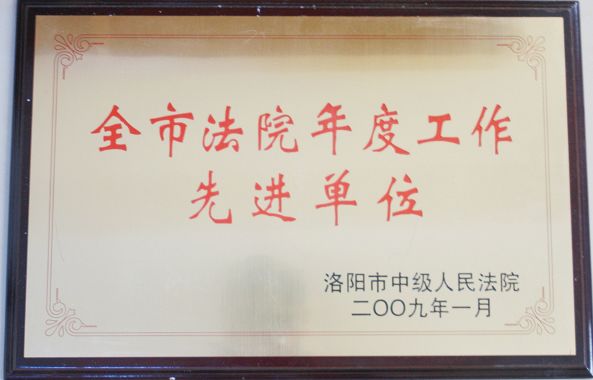 全市法院年度工作
先进单位
洛阳市中级人民法院
二〇〇九年一月